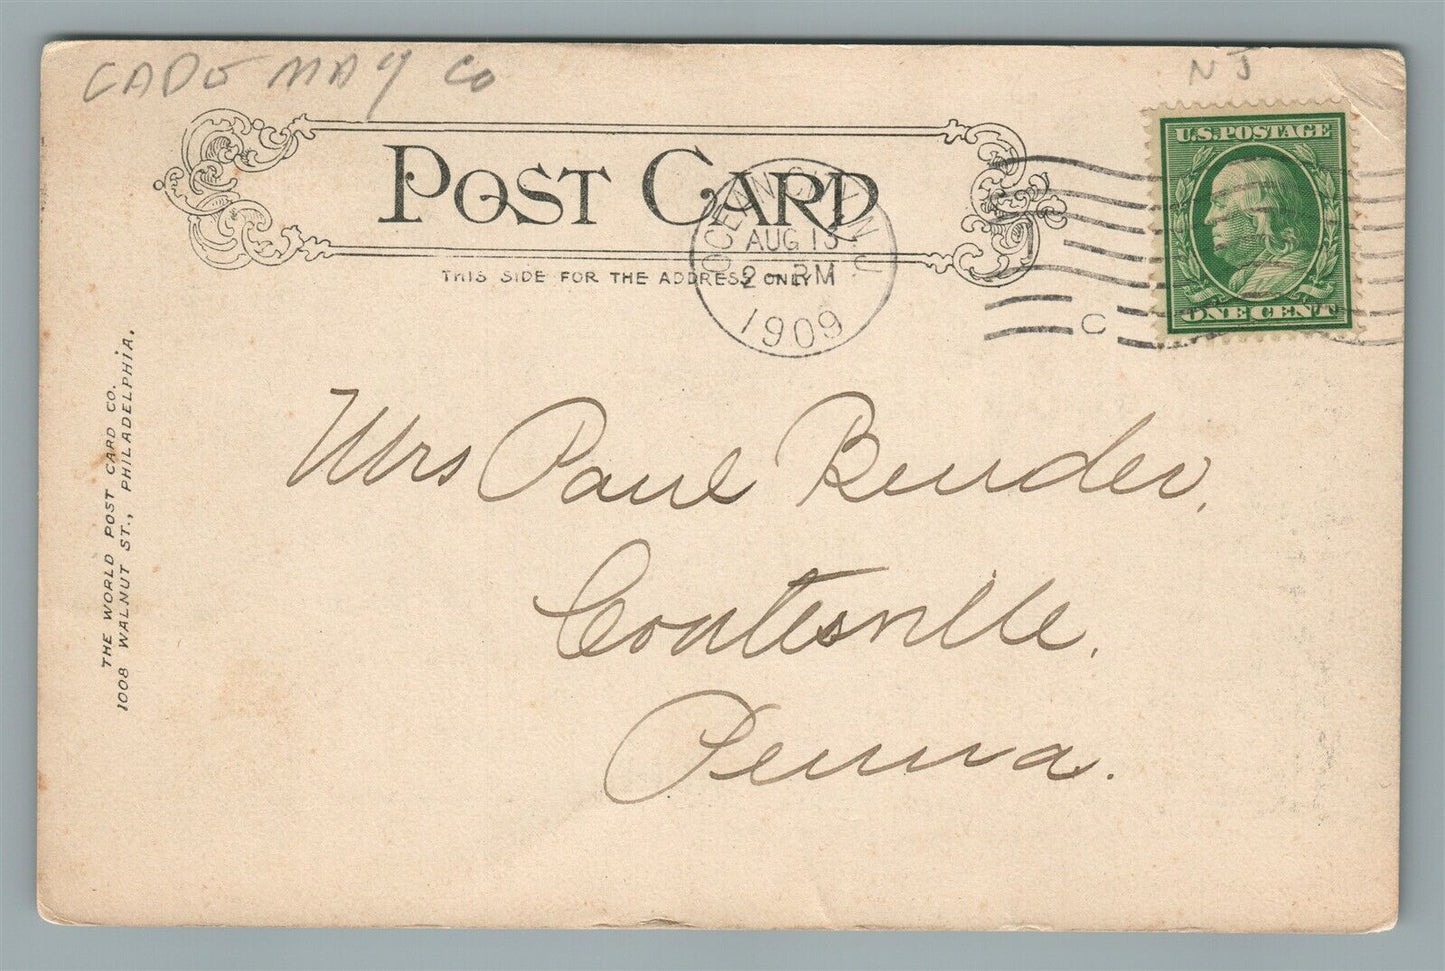 CAPE MAY Co
N J
POST CARD
THIS SIDE FOR THE ADDRESS ONLY
OCEAN CITY, N.J.
AUG 13
2 - PM
1909
C
U.S. POSTAGE
ONE CENT
Mrs Paul Bender,
Coatesville.
Penna.
THE WORLD POST CARD CO.
1008 WALNUT ST., PHILADELPHIA.